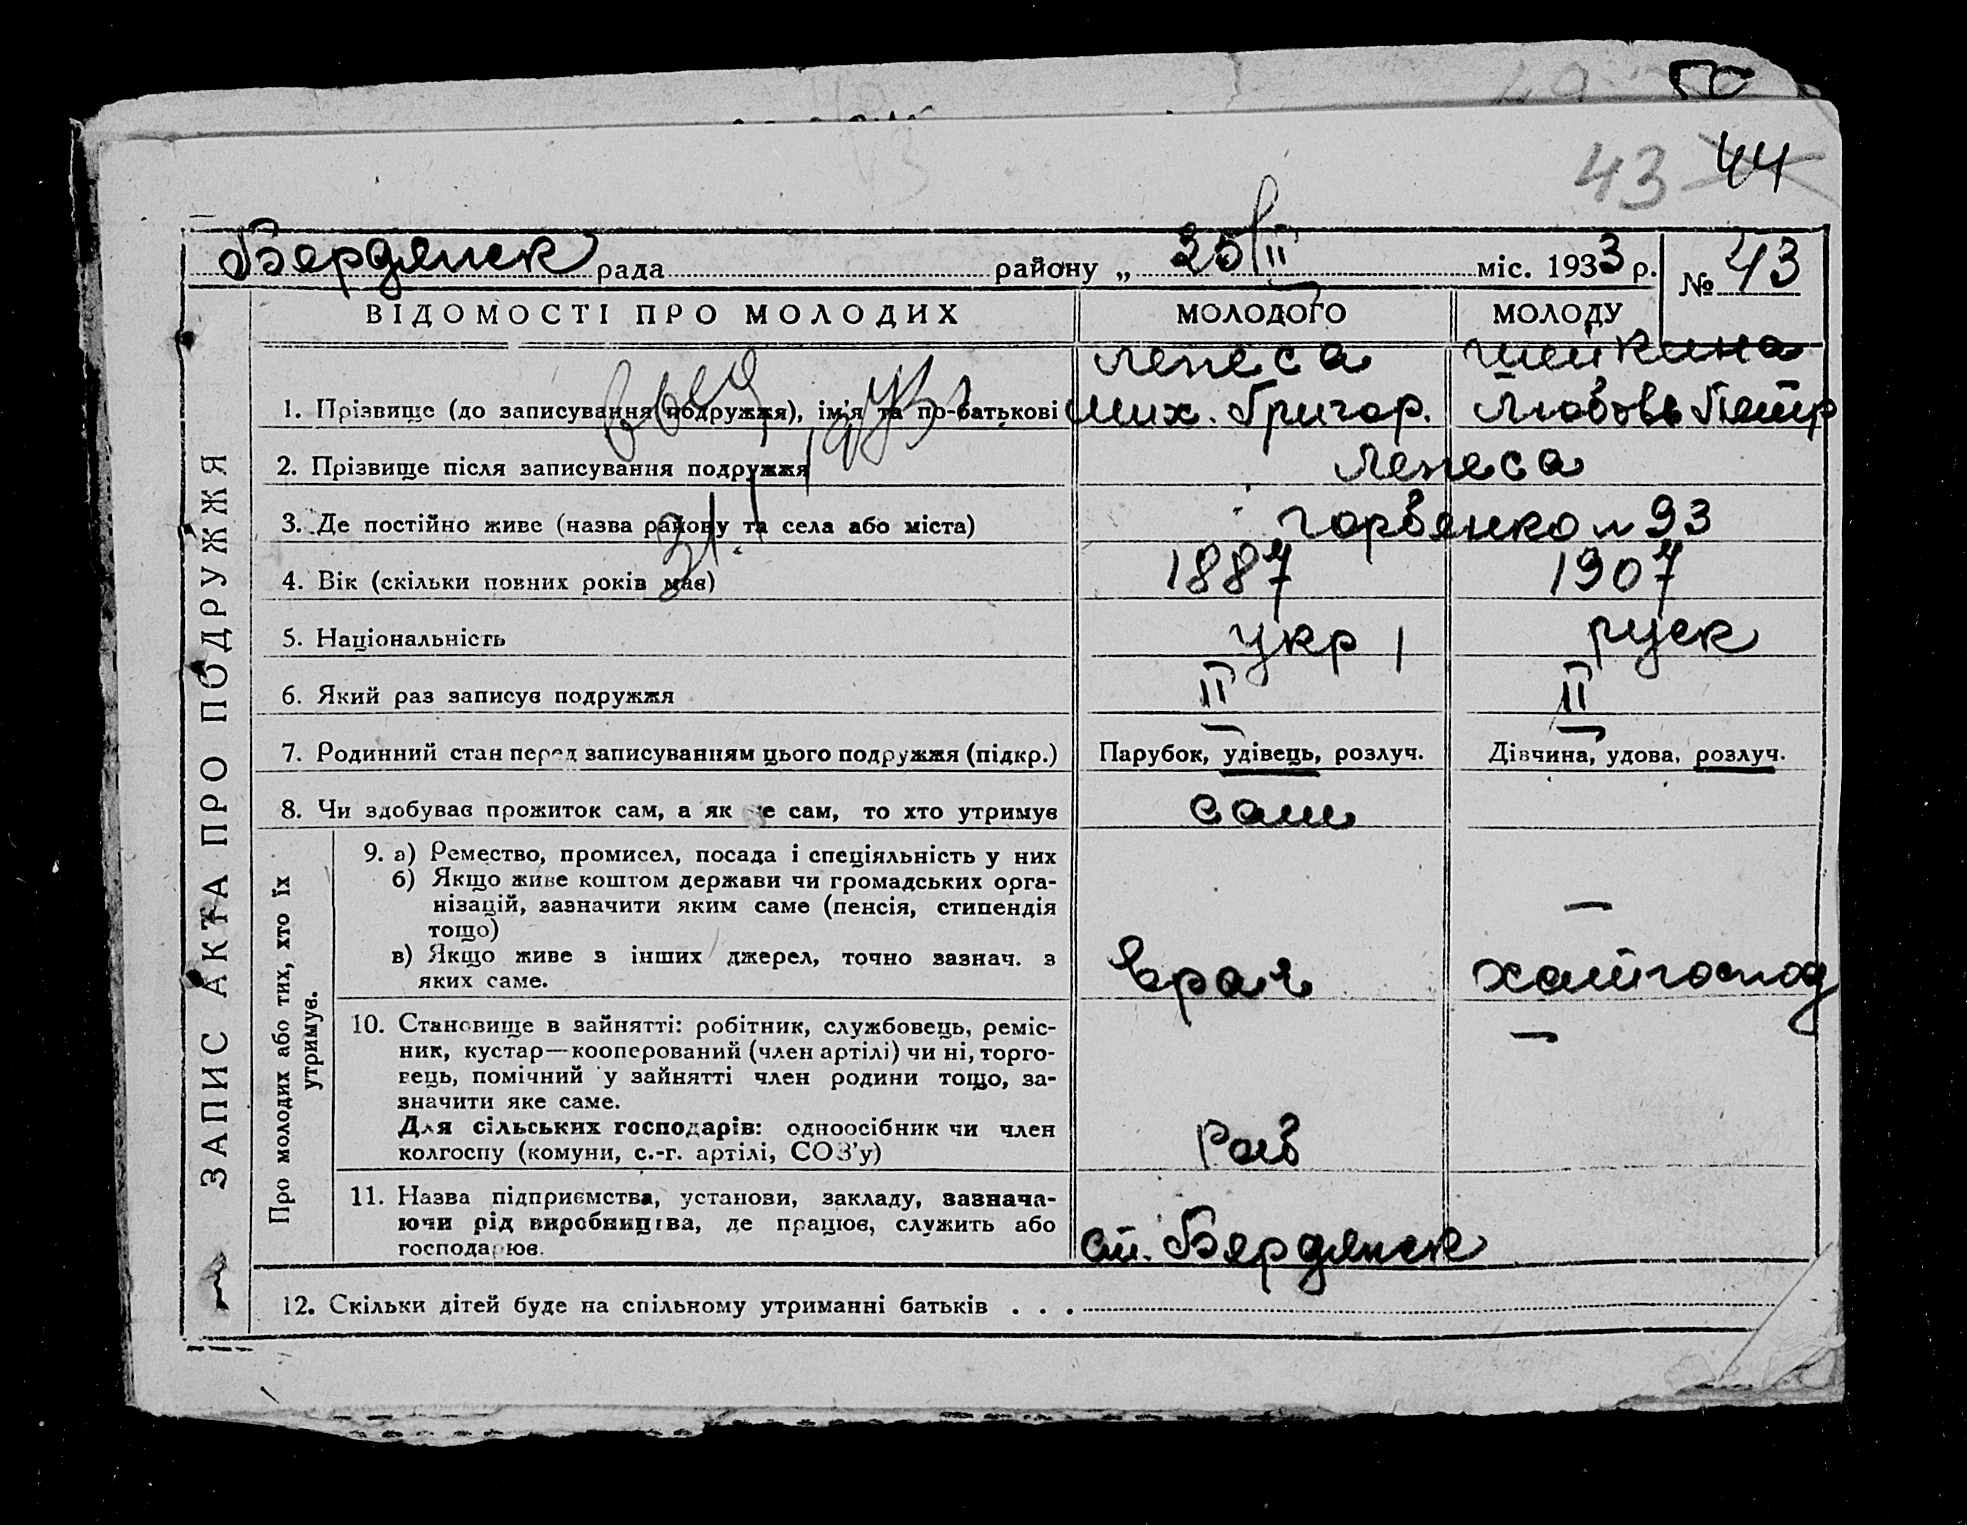 50
43 44
Бердянск рада району „ 25/II міс. 1933 р. № 43
ВІДОМОСТІ ПРО МОЛОДИХ МОЛОДОГО МОЛОДУ
Лепеса Шейкина
1. Прізвище (до записування подружжя), ім'я та по-батькові Мих. Григор. Любовь Петр
2. Прізвище після записування подружжя Лепеса
3. Де постійно живе (назва району та села або міста) 93
4. Вік (скільки повних років має) 1887 1907
5. Національність укр руск
6. Який раз записує подружжя II II
7. Родинний стан перед записуванням цього подружжя (підкр.) Парубок, удівець, розлуч. Дівчина, удова, розлуч.
8. Чи здобуває прожиток сам, а як не сам, то хто утримує сам
9. а) Ремество, промисел, посада і спеціяльність у них
б) Якщо живе коштом держави чи громадських орга-
нізацій, зазначити яким саме (пенсія, стипендія
тощо)
в) Якщо живе з інших джерел, точно зазнач. з
яких саме. врач
10. Становище в зайнятті: робітник, службовець, реміс-
ник, кустар—кооперований (член артілі) чи ні, торго-
вець, помічний у зайнятті член родини тощо, за-
значити яке саме.
Для сільських господарів: одноосібник чи член
колгоспу (комуни, с.-г. артілі, СОЗ'у) Раб
11. Назва підприємства, установи, закладу, зазнача-
ючи рід виробництва, де працює, служить або
господарює. ст. Бердянск
12. Скільки дітей буде на спільному утриманні батьків . . .
ЗАПИС АКТА ПРО ПОДРУЖЖЯ
Про молодих або тих, хто їх
утримує.